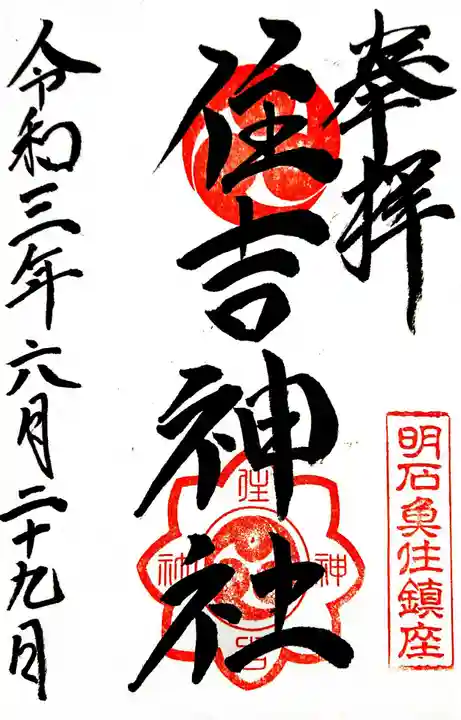 奉拝
明石魚住鎮座
住吉神社
住
吉
神
社
令和三年六月二十九日